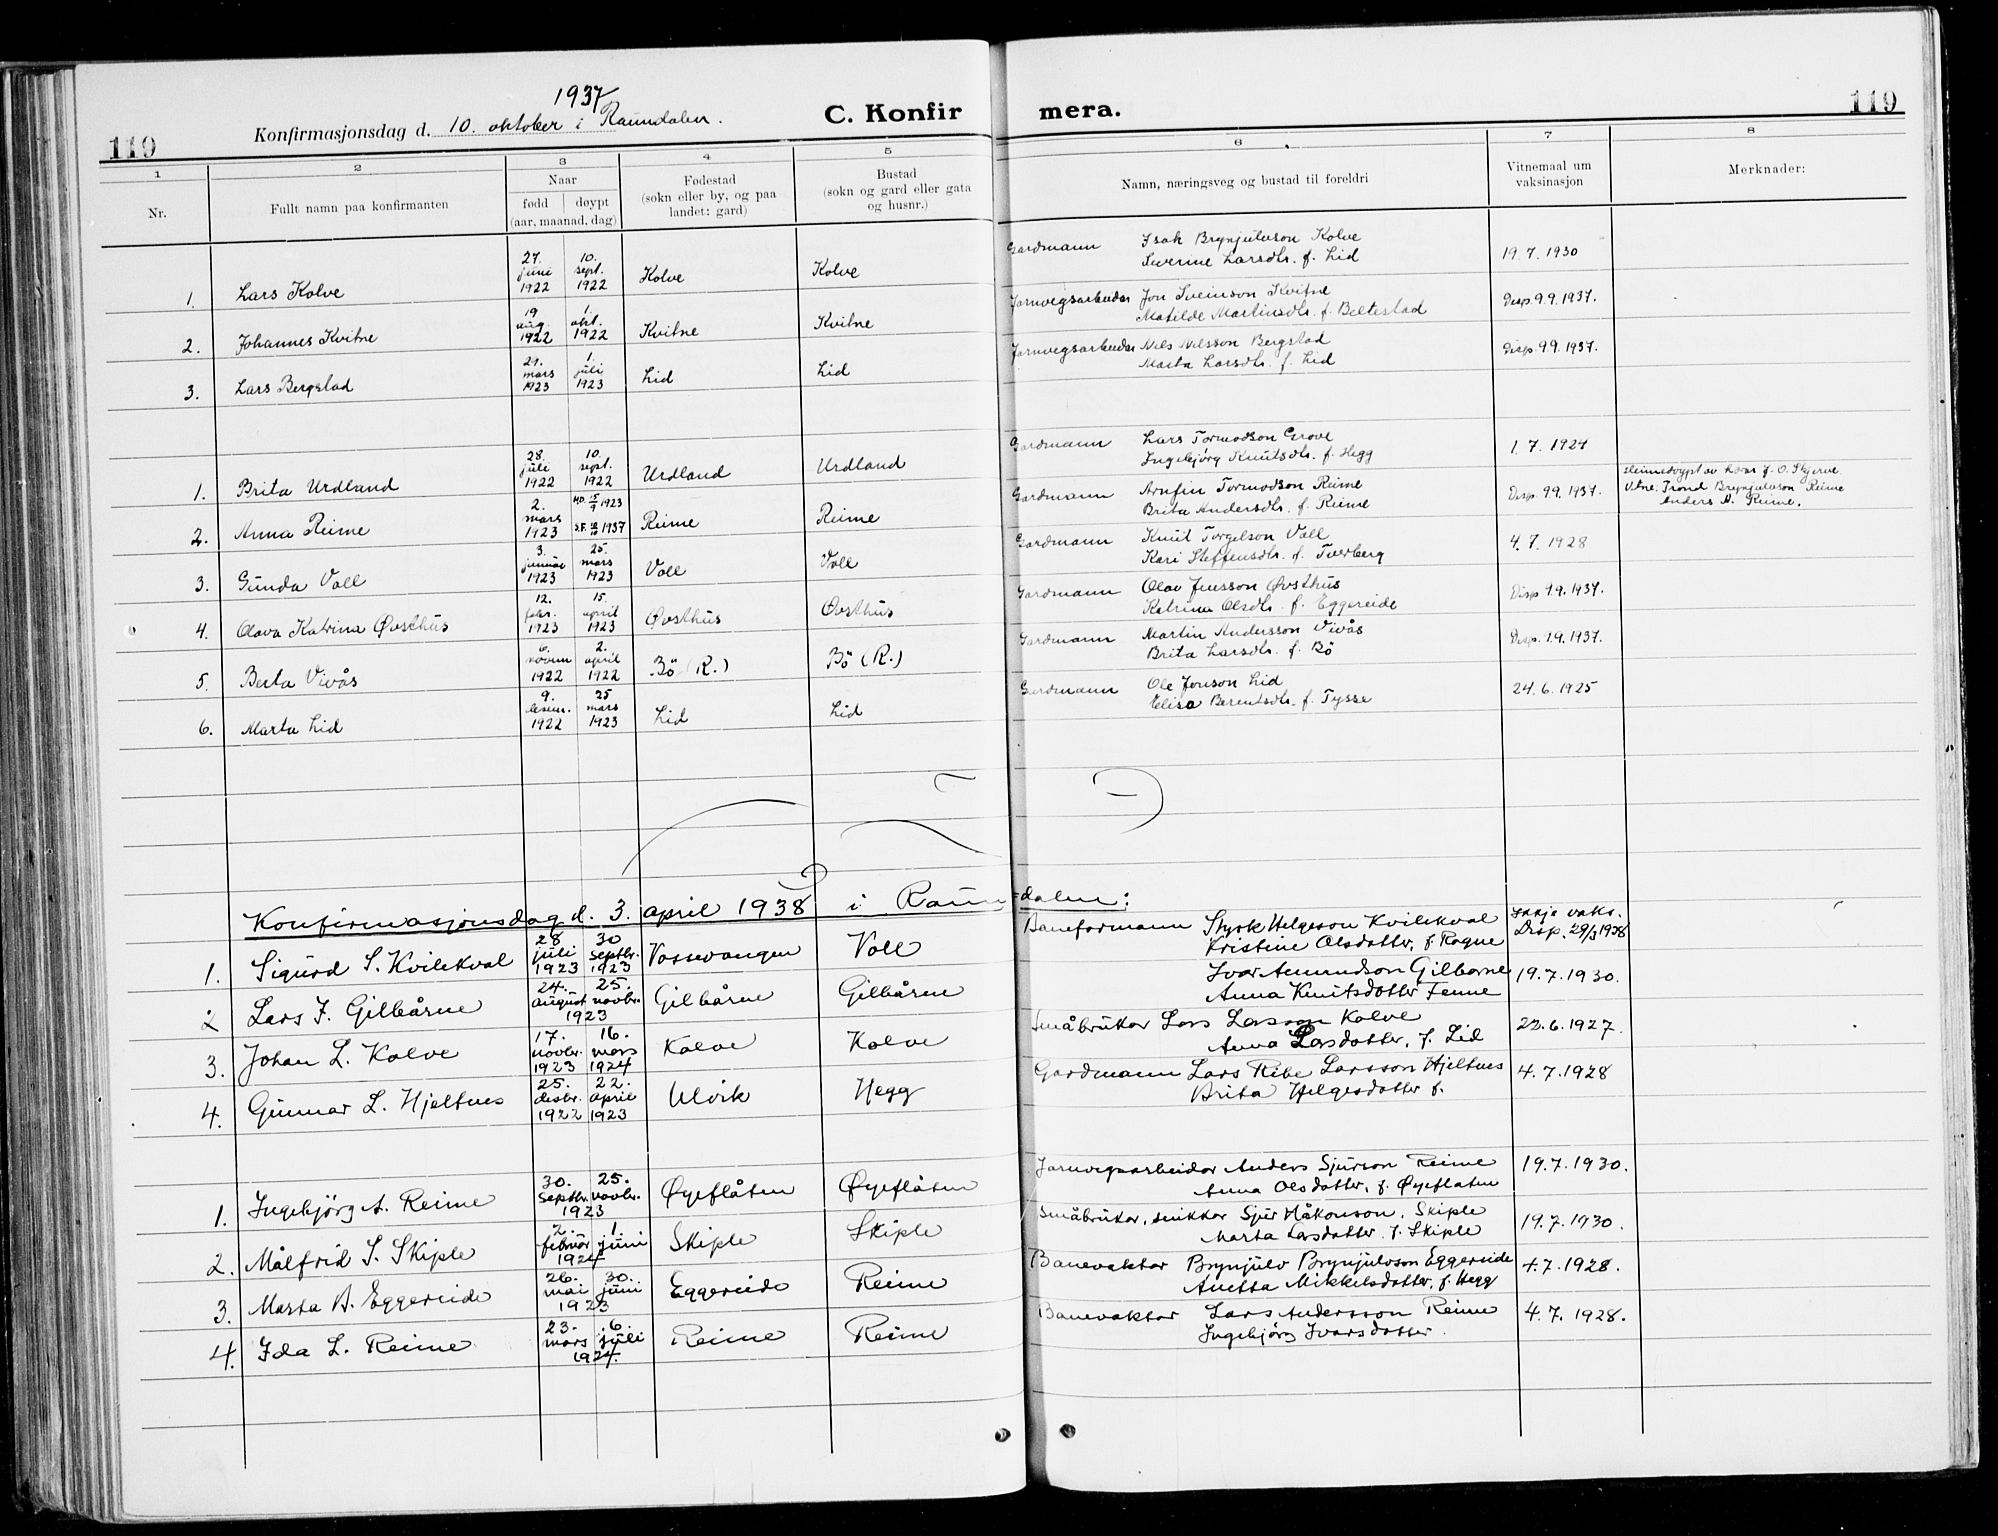 119
Konfirmasjonsdag d. 10. oktober i Raundalen. 1937
C. Konfirmera.
119
1 2 3 4 5 6 7 8
Nr.
Fullt namn paa konfirmanten
Naar
fødd døypt
(aar, maanad, dag)
Fødestad
(sokn eller by, og paa
landet: gard)
Bustad
(sokn og gard eller gata
og husnr.)
Namn, næringsveg og bustad til foreldri
Vitnemaal um
vaksinasjon
Merknader:
1. Lars Kolve 27. juni 1922 10. sept. 1922 Kolve Kolve Gardmann Isak Brynjulvson Kolve Severine Larsdtr. f. Lid 19.7.1930
2. Johannes Kvitne 19 aug. 1922 1. okt. 1922 Kvitne Kvitne Jarnvegsarbeidar Jon Sveinson Kvitne Matilde Martinsdtr. f. Beltestad Disp. 9.9.1937.
3. Lars Bergstad 21. mars 1923 1. juli 1923 Lid Lid Jarnvegsarbeidar Nils Nilsson Bergstad Marta Larsdtr. f. Lid Disp. 9.9.1937.
1. Brita Urdland 28. juli 1922 10. sept. 1922 Urdland Urdland Gardmann Lars Tormodson Grove Ingebjørg Knutsdtr. f. Hegg 1.7.1927
2. Anna Reime 2. mars 1923 HD. 15/9 1923 10/10 1937 Reime Reime Gardmann Arnfin Tormodson Reime Brita Andersdtr. f. Reime Disp. 9.9.1937. Heimedøypt av Lars J. O. Skjerve. Vitne: Trond Brynjulvson Reime Anders A. Reime.
3. Gunda Voll 3. januar 1923 25. mars 1923 Voll Voll Gardmann Knut Torgelson Voll Kari Steffensdtr. f. Tverberg 4.7.1928
4. Olava Katrina Øvsthus 12. febr. 1923 15. april 1923 Øvsthus Øvsthus Gardmann Olav Jensson Øvsthus Katrina Olsdtr. f. Eggereide Disp. 9.9.1937.
5. Berta Vivås 6. novem 1922 2. april 1922 Bö (R.) Bö (R.) Gardmann Martin Andersson Vivås Brita Larsdtr. f. Bö Disp. 1.9.1937.
6. Marta Lid 9. desem. 1922 25 mars 1923 Lid Lid Gardmann Ole Jonson Lid Elisa Berentsdtr. f. Tysse 24.6.1925
Konfirmasjonsdag d. 3. april 1938 i Raundalen:
1. Sigurd S. Kvilekval 28 juli 1923 30 septbr. 1923 Vossevangen Voll Baneformann Styrk Helgeson Kvilekval Kristine Olsdotter, f. Rogne Ikkje vaks. Disp. 29/3 1938
2 Lars I. Gilbårne 24. august 25. novbr. 1923 Gilbårne Gilbårne Ivar Amundson Gilbarne Anna Knutsdotter Fenne 19.7.1930.
3. Johan L. Kolve 17. novbr. 1923 16. mars 1924 Kolve Kolve Småbrukar Lars Larsson Kolve Anna Larsdotter, f. Lid 22.6.1927.
4. Gunnar L. Hjeltnes 25. desbr. 1922 22. april 1923 Ulvik Hegg Gardmann Lars Ribe Larsson Hjeltnes Brita Helgesdotter f. 4.7.1928
1. Ingebjörg A. Reime 30. septbr. 25. novbr. 1923 Øyeflåten Øyeflåten Jarnvegsarbeidar Anders Sjurson Reime Anna Olsdotter, f. Øyeflaten 19.7.1930.
2. Målfrid S. Skiple 2. februar 1. juni 1924 Skiple Skiple Småbrukar, snikkar Sjur Håkonson, Skiple Marta Larsdotter f. Skiple 19.7.1930.
3. Marta B. Eggereide 26. mai 30. juni 1923 Eggereide Reime Banevaktar Brynjulv Brynjulvson Eggereide Anetta Mikkelsdotter, f. Hegg 4.7.1928.
4. Ida L. Reime 23. mars 6. juli 1924. Reime Reime Banevaktar Lars Andersson Reime Ingebjörg Ivarsdotter. 4.7.1928.